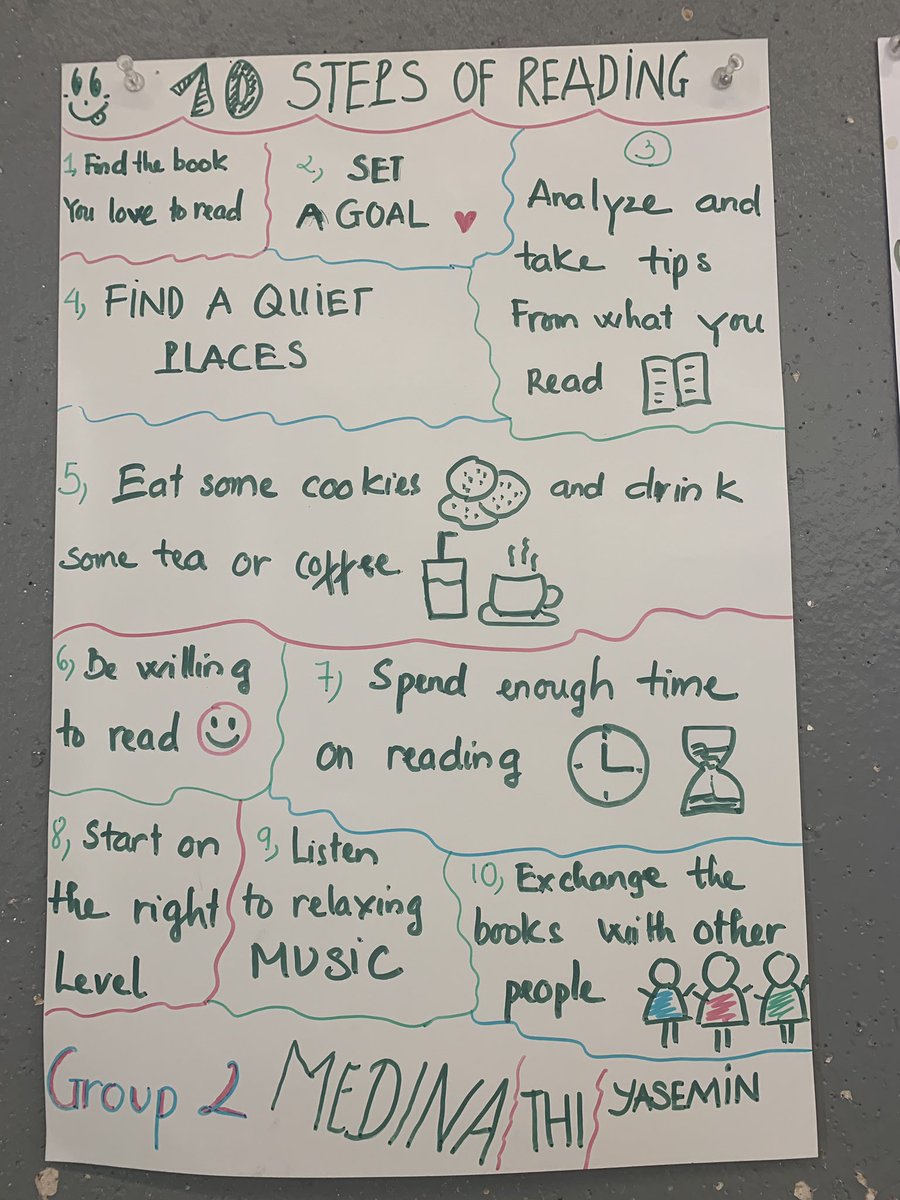 10 STEPS OF READING
1, Find the book
You love to read
2, SET
A GOAL
3
Analyze and
take tips
From what you
Read
4, FIND A QUIET
PLACES
5, Eat some cookies and drink
some tea or coffee
6, Be willing
to read
7, Spend enough time
on reading
8, Start on
the right
Level
9, Listen
to relaxing
MUSIC
10, Exchange the
books with other
people
Group 2 MEDINA THI YASEMIN